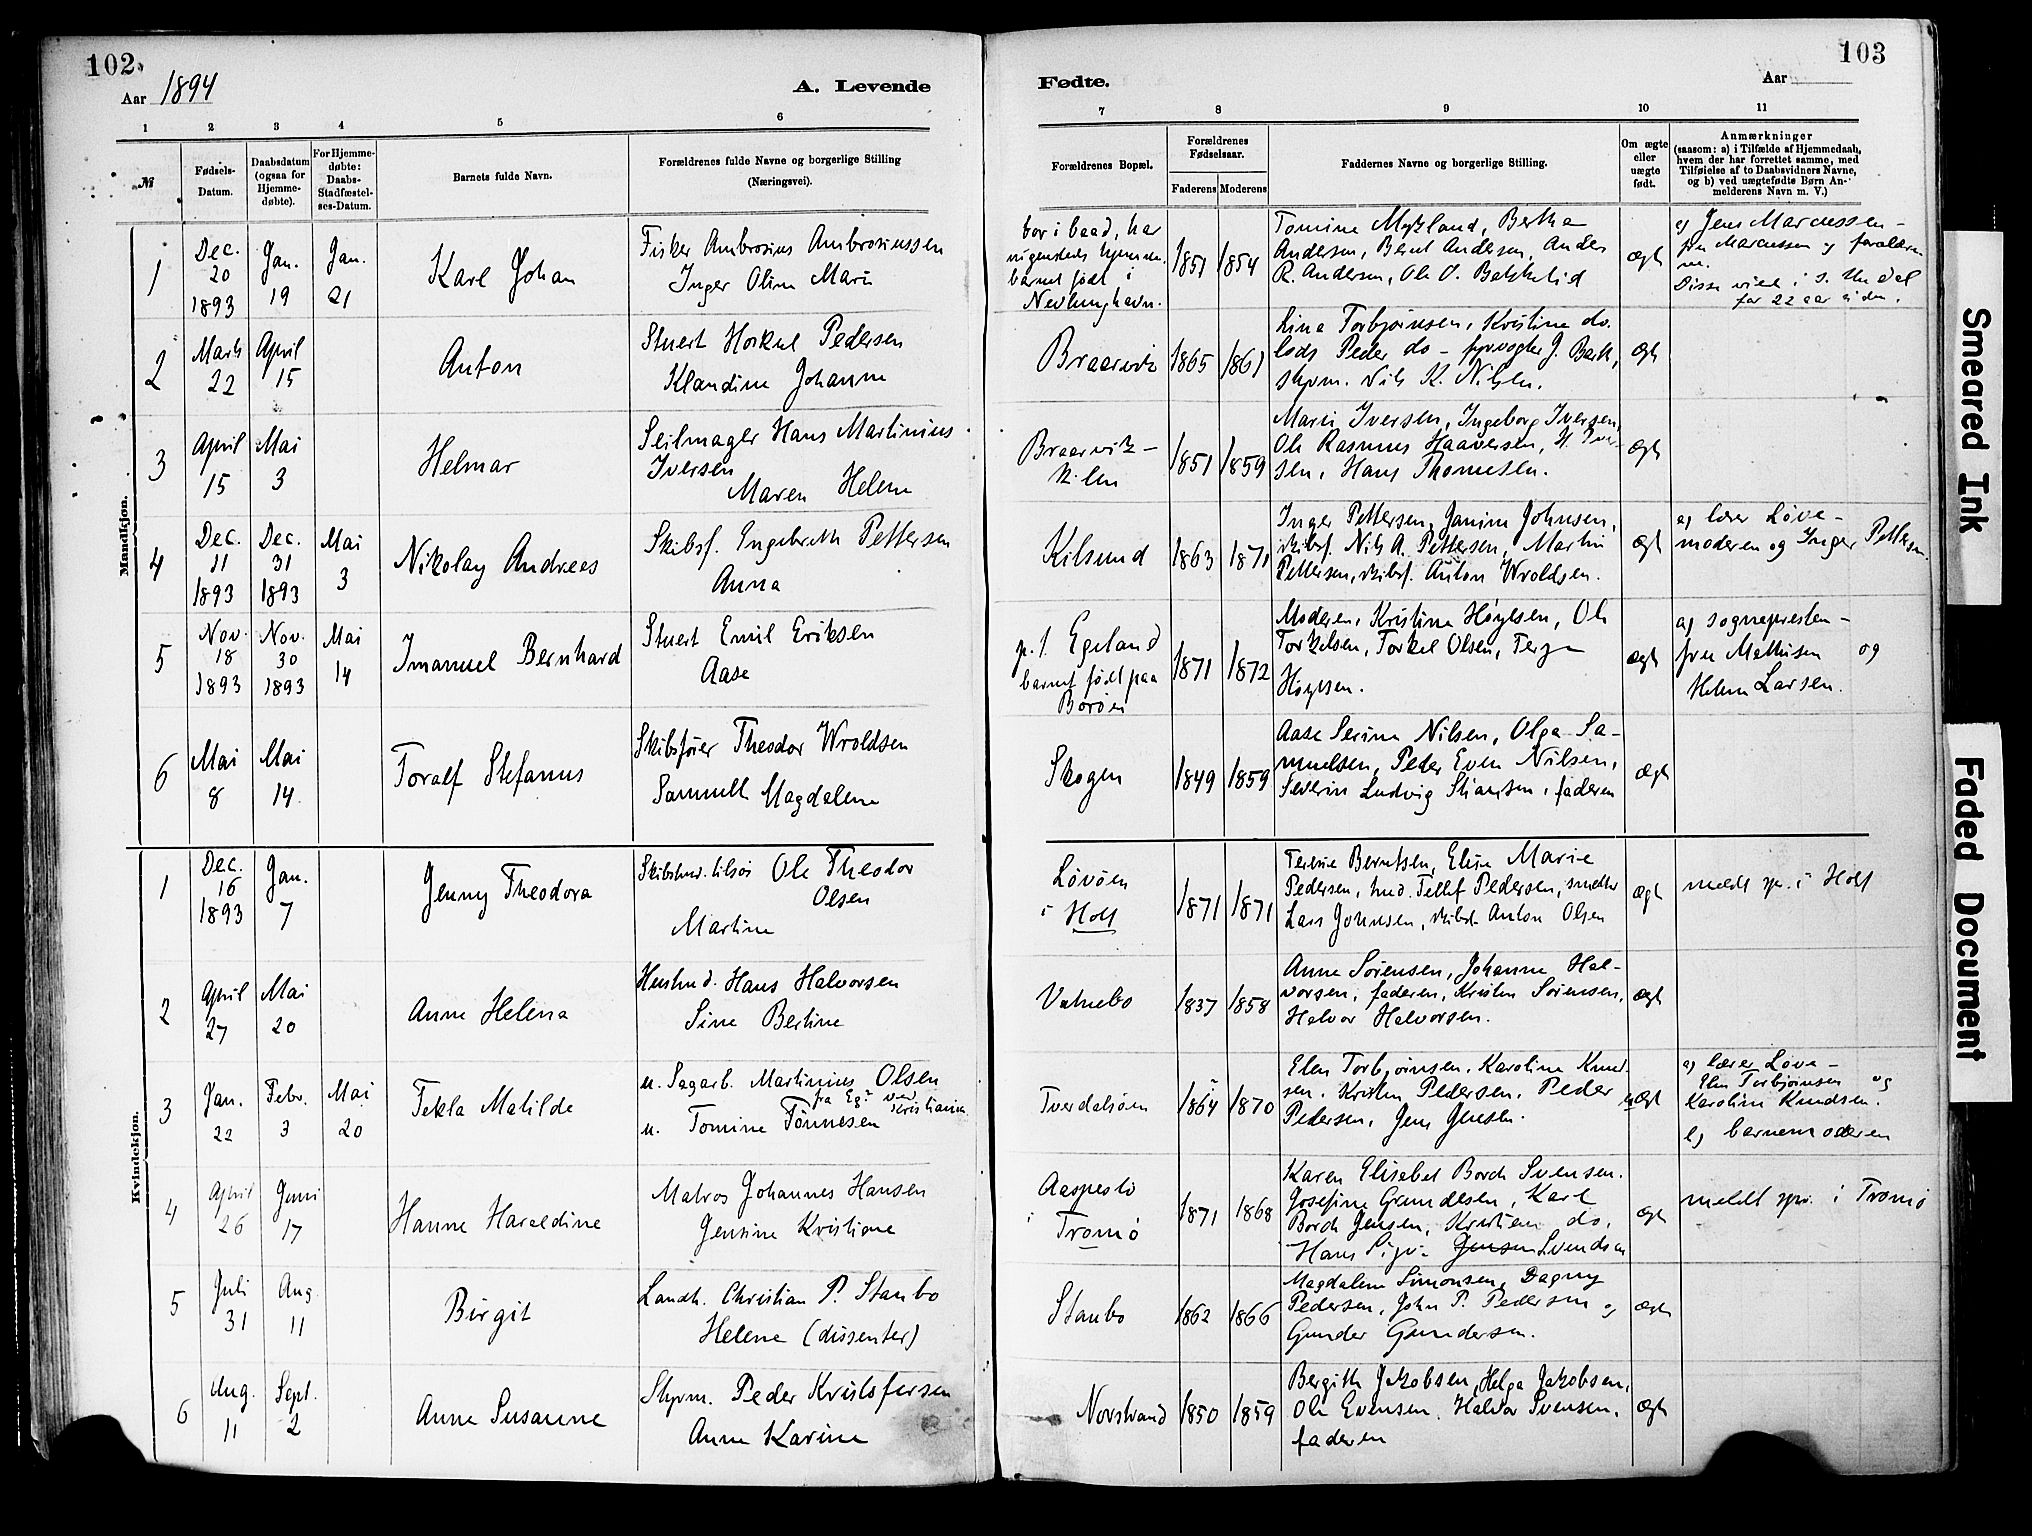 102
Aar 1894
A. Levende
1 2 3 4 5 6
№
Fødsels-
Datum.
Daabsdatum
(ogsaa for
Hjemme-
døbte).
For Hjemme-
døbte:
Daabs-
Stadfæstel-
ses-Datum.
Barnets fulde Navn.
Forældrenes fulde Navne og borgerlige Stilling
(Næringsvei).
Mandkjøn.
1
Dec.
20
1893
Jan.
19
Jan.
21
Karl Johan
Fisker Ambrosius Ambrosiussen
Inger Oline Marie
2
Marts
22
April
15
Anton
Stuert Horkel Pedersen
Klandine Johanne
3
April
15
Mai
3
Helmar
Seilmager Hans Martinius
Iversen
Maren Helene
4
Dec.
11
1893
Dec.
31
1893
Mai
3
Nikolay Andreas
Skibsf. Engebreth Pettersen
Anna
5
Nov.
18
1893
Nov.
30
1893
Mai
14
Imanuel Bernhard
Stuert Emil Eriksen
Aase
6
Mai
8
Mai
14
Toralf Stefanus
Skibsfører Theodor Wroldsen
Magdalene
Kvindekjøn.
1
Dec.
16
1893
Jan.
7
Jenny Theodora
Skibstmd. Ole Theodor
Olsen
Martine
2
April
27
Mai
20
Anne Helena
Hustmd. Hans Halvorsen
Sine Bertine
3
Jan.
22
Febr.
3
Mai
20
Tekla Matilde
u. Sagarb. Martinius Olsen
fra Egd ved Kristiania
u. Tomine Tønnesen
4
April
26
Juni
17
Hanne Haraldine
Matros Johannes Hansen
Jensine Kristiane
5
Juli
31
Aug.
11
Birgit
Landh. Christian P. Staubo
Helene (dissenter)
6
Aug.
11
Sept.
2
Anne Susanne
Styrm. Peder Kristofersen
Anne Karine
103
Fødte.
Aar
7 8 9 10 11
Forældrenes Bopæl.
Forældrenes
Fødselsaar.
Faderens Moderens
Faddernes Navne og borgerlige Stilling.
Om ægte
eller
uægte
født.
Anmærkninger
(saasom: a) i Tilfælde af Hjemmedaab,
hvem der har forrettet samme, med
Tilføielse af to Daabsvidners Navne,
og b) ved uægtefødte Børn An-
melderens Navn m. V.)
bor i baad, har
ingensteds hjemme.
barnet født i
Nevlunghavn.
1851 1854
Tomine Mykland, Bertha
Andersen, Bernt Andersen, Anders
R. Andersen, Ole O.
ægte
a) Jens Marcussen -
fru Marcussen og forældre-
ne.
Disse viede i S. Undal
for 22 aar siden.
Braarvik
1865 1861
Lina Torbjørnsen, Kristine do.
lods Peder do - fyrvogter J. Bark,
styrm. Nils K. Nilsen.
ægte
Braarvik-
kilen
1851 1859
Marie Iversen, Ingeborg Iversen,
Ole Rasmus Haaversen, H. Iver-
sen, Hans Thomesen.
ægte
Kilsund
1863 1871
Inger Pettersen, Janine Johnsen,
skibsf. Nils A. Pettersen, Martin
Pettersen, skibsf. Anton Wroldsen.
ægte
a) lærer Løve -
moderen og Inger Pettersen.
p.t. Egeland
barnet født paa
Borøen
1871 1872
Moderen, Kristine Høylsen, Ole
Torkelsen, Torkel Olsen, Terje
Høylsen.
ægte
a) sognepresten -
fru Mathisen og
Helene Larsen.
Skogen
1849 1859
Aase Serine Nilsen, Olga Sa-
muelsen, Peder Even Nilsen,
Severin Ludvig Stiansen, faderen
ægte
Løvøen
i Holt
1871 1871
Terese Berntsen, Elise Marie
Pedersen, tmd. Tellef Pedersen, smeder
Lars Johnsen, skibst. Anton Olsen
ægte
meldt spr. i Holt
Vatnebo
1837 1858
Anne Sørensen, Johanne Hal-
vorsen, faderen, Kristen Sørensen,
Halvor Halvorsen.
ægte
Tverdalsøen
1864 1870
Elen Torbjørnsen, Karoline Knud-
sen, Kristen Pedersen, Peder
Pedersen, Jens Jensen.
uægte
a) lærer Løve -
Elen Torbjørnsen og
Karoline Knudsen.
b) barnemoderen
Aaspestø
i Tromø
1871 1868
Karen Elisabet Borch Svensen.
Josefine Gundersen, Karl
Borch Jensen, Kristian do.
Hans Sigv. Jensen Svendsen
ægte
meldt spr. i Tromø
Staubo
1862 1866
Magdalene Simonsen, Dagny
Pedersen, John P. Pedersen og
Gunder Gundersen.
ægte
Norstrand
1850 1859
Bergithe Jakobsen, Helga Jakobsen,
Ole Evensen, Halvor Svensen,
faderen
ægte
Smeared Ink
Faded Document